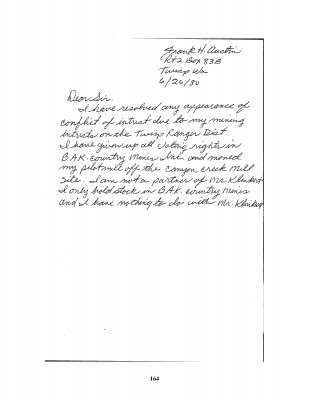 Frank H. Austin
Rt 2 Box 83B
Twisp Wa
6/26/80
Dear Sir.
I have resolved any appearance of
conflict of intrust due to my mining
intrists on the Twisp Ranger Dist.
I have given up all voting rights in
B.A.K. country Mines Inc and moved
my pilot mill off the Canyon creek Mill
Site. I am not a partner of Mr. Klinkert
I only hold stock in B.A.K. country Mines
and I have nothing to do with Mr. Klinkert
164